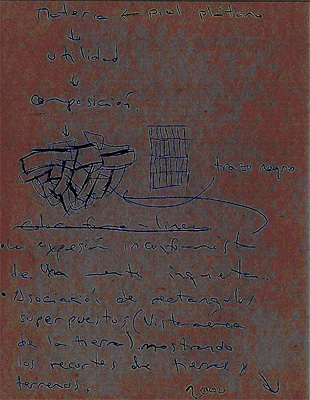 materia ← piel plátano
↓
utilidad
↓
composición.
↓
trazo negro
color fondo - línea
• la expresión inconformista
de una mente inquieta.
• Asociación de rectangulos
superpuestos (Vista aerea
de la tierra) mostrando
los recortes de tierras y
terrenos.